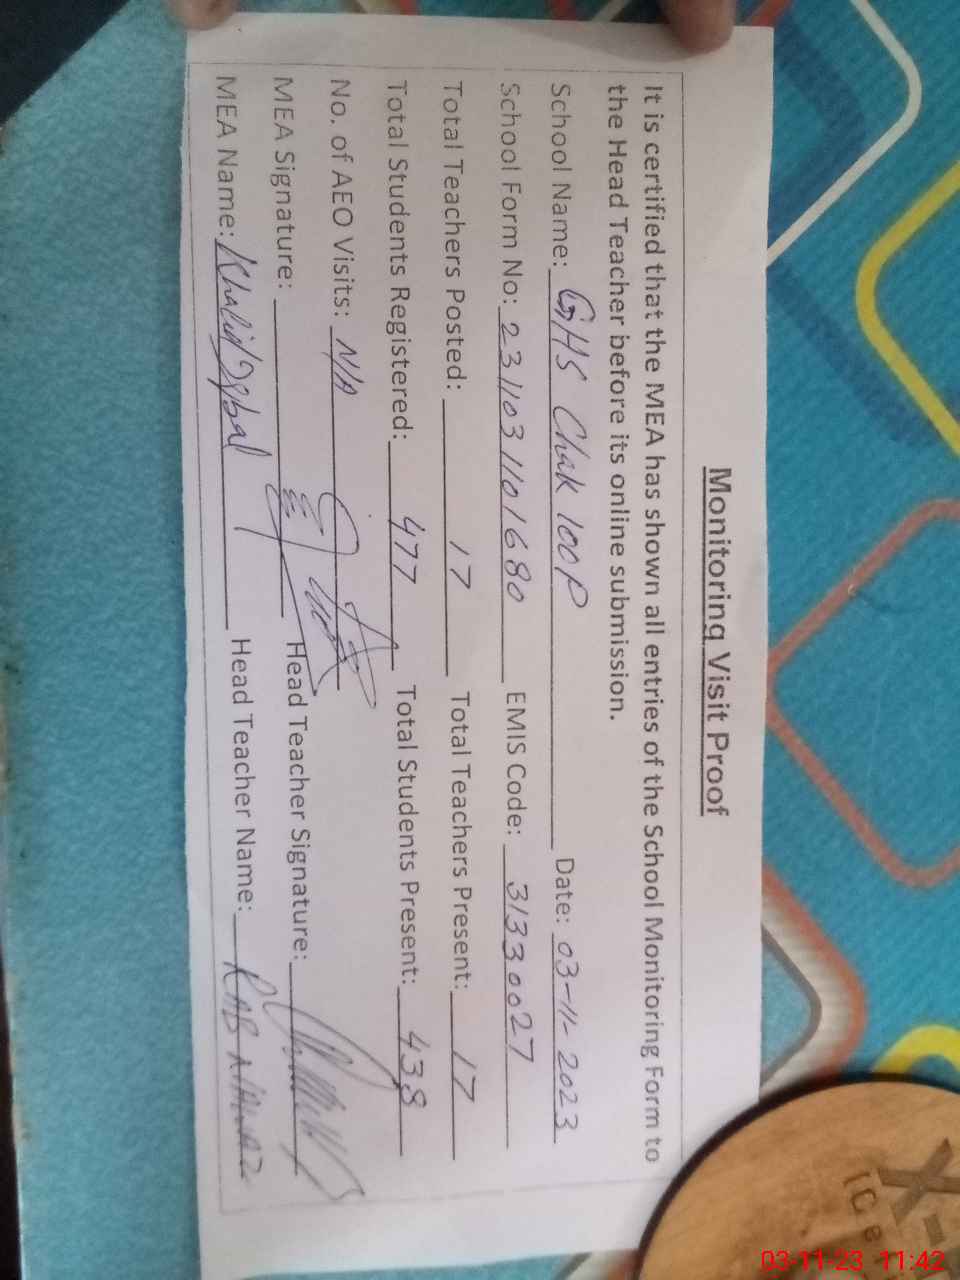 Monitoring Visit Proof
It is certified that the MEA has shown all entries of the School Monitoring Form to
the Head Teacher before its online submission.
School Name: GHS Chak 100P Date: 03-11-2023
School Form No: 231103110 1680 EMIS Code: 31330027
Total Teachers Posted: 17 Total Teachers Present: 17
Total Students Registered: 477 Total Students Present: 438
No. of AEO Visits: N/A
MEA Signature: Head Teacher Signature:
MEA Name: Khalid Iqbal Head Teacher Name: Rab Nawaz
X-
ice
03-11-23 11:42